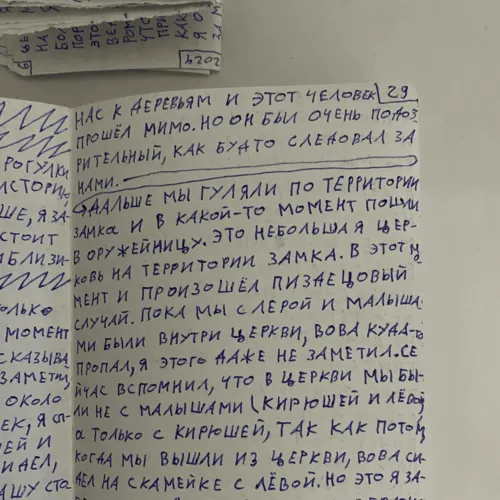 НАС К ДЕРЕВЬЯМ И ЭТОТ ЧЕЛОВЕК
29
ПРОШЁЛ МИМО. НО ОН БЫЛ ОЧЕНЬ ПОДОЗ
РИТЕЛЬНЫЙ, КАК БУДТО СЛЕДОВАЛ ЗА
НАМИ.
ДАЛЬШЕ МЫ ГУЛЯЛИ ПО ТЕРРИТОРИИ
ЗАМКА И В КАКОЙ-ТО МОМЕНТ ПОШЛИ
В ОРУЖЕЙНИЦУ. ЭТО НЕБОЛЬШАЯ ЦЕР-
КОВЬ НА ТЕРРИТОРИИ ЗАМКА. В ЭТОТ МО
МЕНТ И ПРОИЗОШЁЛ ПИЗДЕЦОВЫЙ
СЛУЧАЙ. ПОКА МЫ С ЛЕРОЙ И МАЛЫША-
МИ БЫЛИ ВНУТРИ ЦЕРКВИ, ВОВА КУДА-ТО
ПРОПАЛ, Я ЭТОГО ДАЖЕ НЕ ЗАМЕТИЛ. СЕ
ЙЧАС ВСПОМНИЛ, ЧТО В ЦЕРКВИ МЫ БЫ-
ЛИ НЕ С МАЛЫШАМИ (КИРЮШЕЙ И ЛЁВОЙ)
А ТОЛЬКО С КИРЮШЕЙ, ТАК КАК ПОТОМ
КОГДА МЫ ВЫШЛИ ИЗ ЦЕРКВИ, ВОВА СИ-
ДЕЛ НА СКАМЕЙКЕ С ЛЁВОЙ. НО ЭТО Я ЗА-
РОГУЛКИ
ИСТОРИ
ШЕ, Я ЗА
СТОИТ
АБЛИЗИ-
ОЛЬКО
МОМЕНТ
СКАЗЫВА
ЗАМЕТИЛ
ОКОЛО
ЕК, Я СП-
ЕЙ И
ИДЕЛ,
АШУ СТО